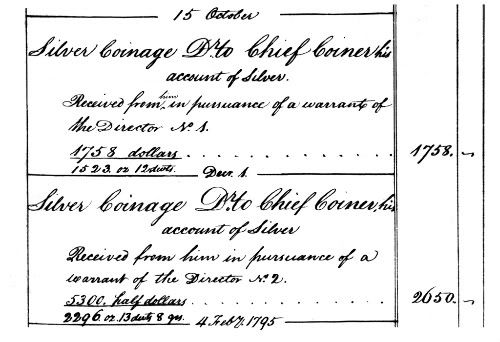 15 October
Silver Coinage Dr. to Chief Coiner, his
account of Silver.
Received from him in pursuance of a warrant of
the Director No. 1.
1758 dollars . . . . . . . . . . . . 1758. ~
1523. oz 12 dwts.
Dec. 1.
Silver Coinage Dr. to Chief Coiner, his
account of Silver
Received from him in pursuance of a
warrant of the Director No. 2.
5300. half dollars . . . . . . . . . . . . 2650. ~
2296 oz. 13 dwts 8 grs.
4 Feby. 1795